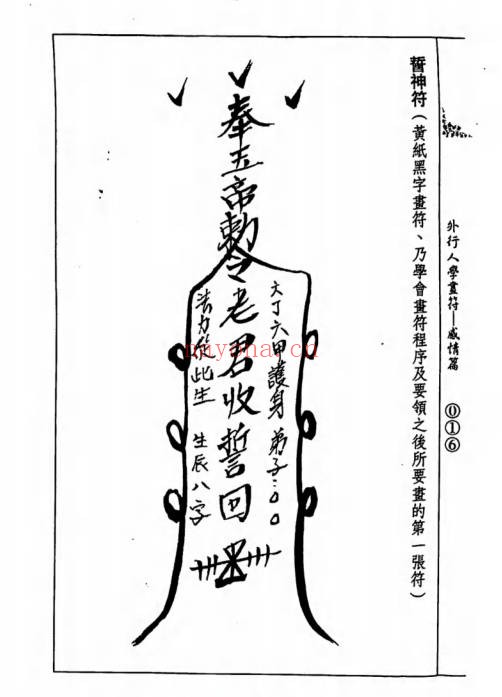 外行人學畫符—感情篇
016
誓神符（黃紙黑字畫符、乃學會畫符程序及要領之後所要畫的第一張符）
奉五帝勅令老君收誓回
六丁六甲護身 弟子：○○
法力 此生 生辰八字